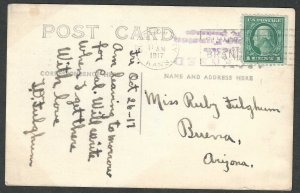 POST CARD
1917
KANSAS
U.S. POSTAGE
Fri Oct 26-17
Am leaving tomorrow
for Cal. Will write
when I get there
With love
W. Fulghum
NAME AND ADDRESS HERE
Miss Ruby Fulghum
Buena,
Arizona.